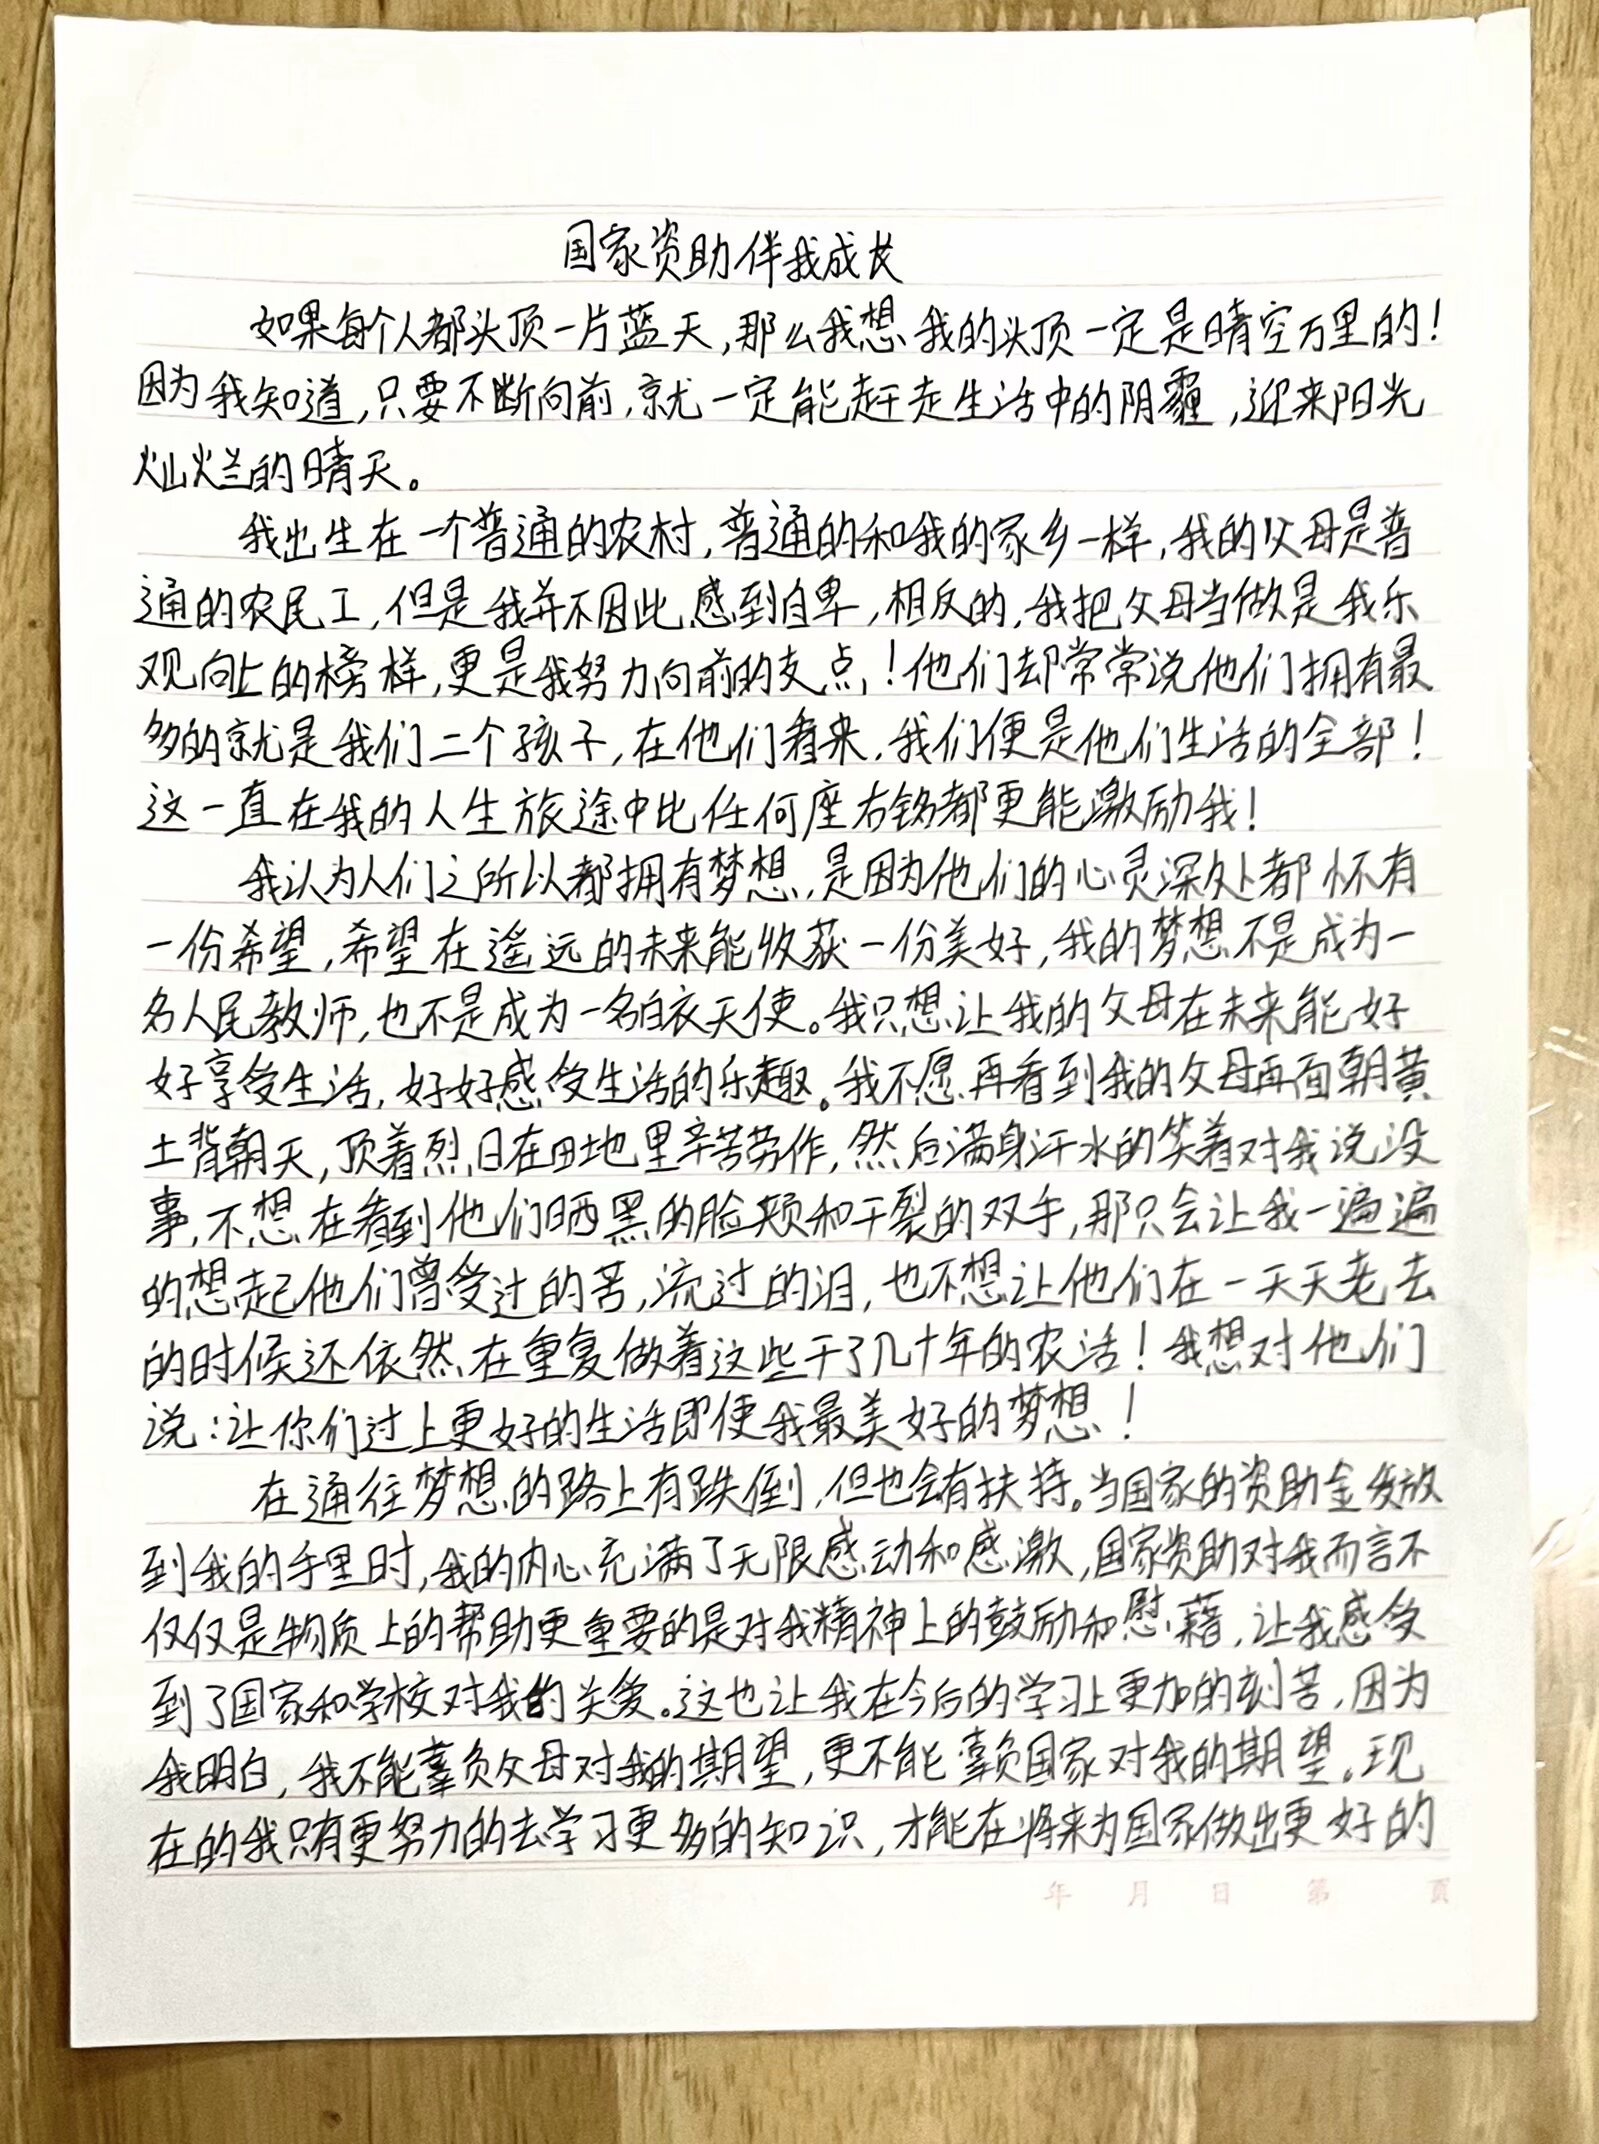 国家资助伴我成长
如果每个人都头顶一片蓝天,那么我想我的头顶一定是晴空万里的!
因为我知道,只要不断向前,就一定能赶走生活中的阴霾,迎来阳光
灿烂的晴天。
我出生在一个普通的农村,普通的和我的家乡一样,我的父母是普
通的农民工,但是我并不因此感到自卑,相反的,我把父母当做是我乐
观向上的榜样,更是我努力向前的支点!他们却常常说他们拥有最
多的就是我们二个孩子,在他们看来,我们便是他们生活的全部!
这一直在我的人生旅途中比任何座右铭都更能激励我!
我认为人们之所以都拥有梦想,是因为他们的心灵深处都怀有
一份希望,希望在遥远的未来能收获一份美好,我的梦想不是成为一
名人民教师,也不是成为一名白衣天使。我只想让我的父母在未来能好
好享受生活,好好感受生活的乐趣。我不愿再看到我的父母再面朝黄
土背朝天,顶着烈日在田地里辛苦劳作,然后满身汗水的笑着对我说没
事,不想在看到他们晒黑的脸颊和干裂的双手,那只会让我一遍遍
的想起他们曾受过的苦,流过的泪,也不想让他们在一天天老去
的时候还依然在重复做着这些干了几十年的农活!我想对他们
说:让你们过上更好的生活即便我最美好的梦想!
在通往梦想的路上有跌倒,但也会有扶持。当国家的资助金发放
到我的手里时,我的内心充满了无限感动和感激,国家资助对我而言不
仅仅是物质上的帮助更重要的是对我精神上的鼓励和慰藉,让我感受
到了国家和学校对我的关爱。这也让我在今后的学习上更加的刻苦,因为
我明白,我不能辜负父母对我的期望,更不能辜负国家对我的期望。现
在的我只有更努力的去学习更多的知识,才能在将来为国家做出更好的
年 月 日 第 页